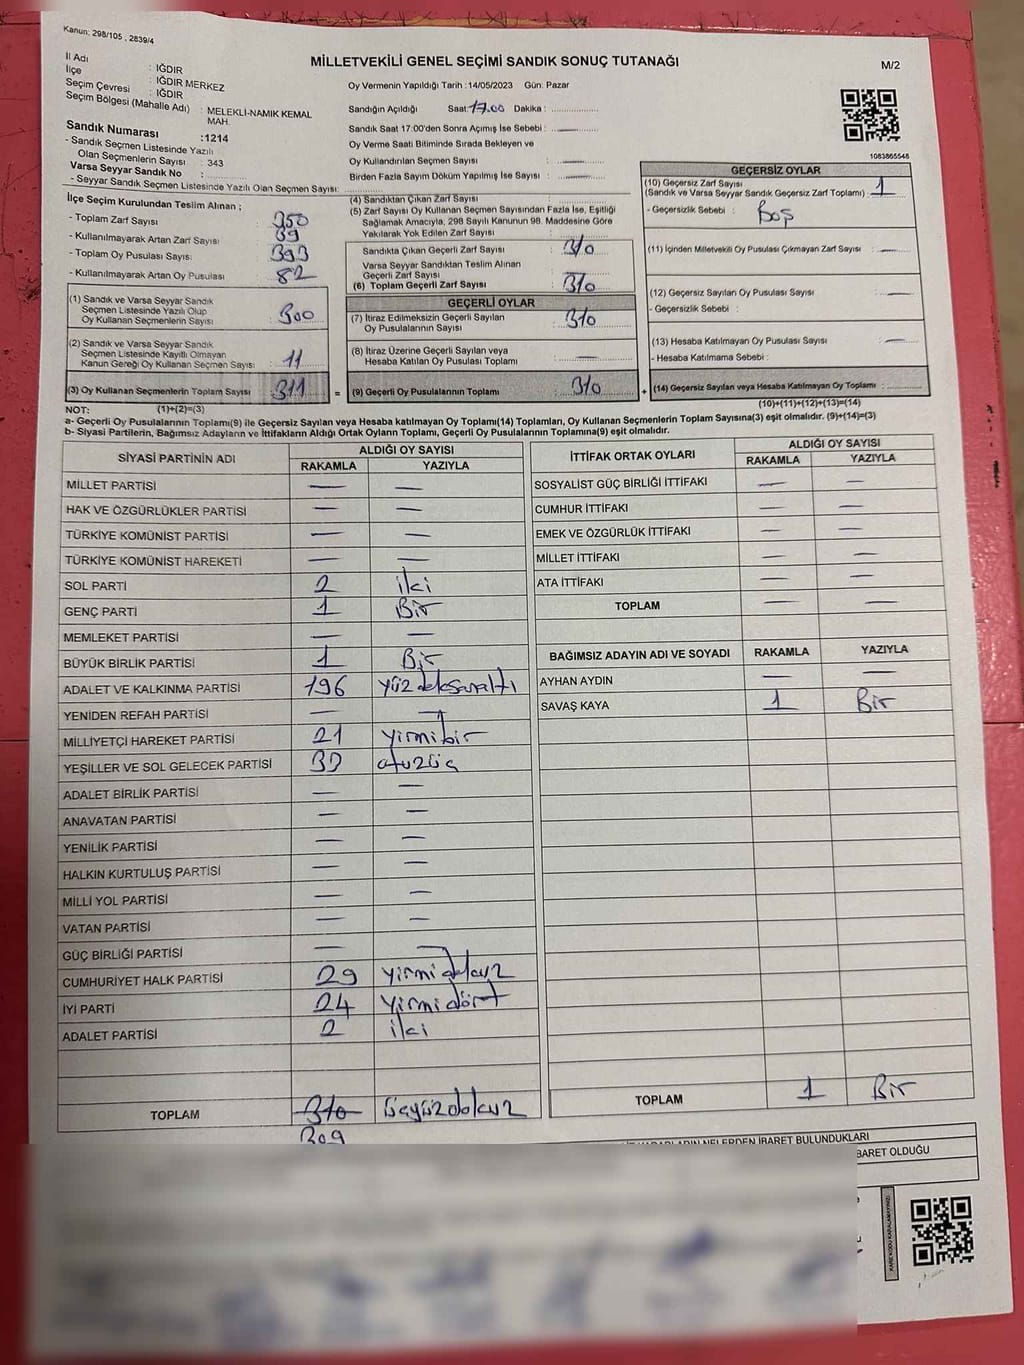 Kanun: 298/105 , 2839/4
MİLLETVEKİLİ GENEL SEÇİMİ SANDIK SONUÇ TUTANAĞI
M/2
İl Adı : IĞDIR
İlçe : IĞDIR MERKEZ
Seçim Çevresi : IĞDIR
Seçim Bölgesi (Mahalle Adı) : MELEKLİ-NAMIK KEMAL
MAH.
Sandık Numarası :1214
- Sandık Seçmen Listesinde Yazılı
Olan Seçmenlerin Sayısı : 343
Varsa Seyyar Sandık No :
- Seyyar Sandık Seçmen Listesinde Yazılı Olan Seçmen Sayısı:
Oy Vermenin Yapıldığı Tarih :14/05/2023 Gün: Pazar
Sandığın Açıldığı Saat: 17.00 Dakika :
Sandık Saat 17:00'den Sonra Açımış İse Sebebi : —
Oy Verme Saati Bitiminde Sırada Bekleyen ve
Oy Kullandırılan Seçmen Sayısı : —
Birden Fazla Sayım Döküm Yapılmış İse Sayısı : —
1083865548
İlçe Seçim Kurulundan Teslim Alınan ;
- Toplam Zarf Sayısı : 350
- Kullanılmayarak Artan Zarf Sayısı : 39
- Toplam Oy Pusulası Sayısı : 393
- Kullanılmayarak Artan Oy Pusulası : 82
(1) Sandık ve Varsa Seyyar Sandık
Seçmen Listesinde Yazılı Olup
Oy Kullanan Seçmenlerin Sayısı : 300
(2) Sandık ve Varsa Seyyar Sandık
Seçmen Listesinde Kayıtlı Olmayan
Kanun Gereği Oy Kullanan Seçmen Sayısı : 11
(3) Oy Kullanan Seçmenlerin Toplam Sayısı : 311 =
(4) Sandıktan Çıkan Zarf Sayısı :
(5) Zarf Sayısı Oy Kullanan Seçmen Sayısından Fazla İse, Eşitliği
Sağlamak Amacıyla, 298 Sayılı Kanunun 98. Maddesine Göre
Yakılarak Yok Edilen Zarf Sayısı :
Sandıkta Çıkan Geçerli Zarf Sayısı : 310
Varsa Seyyar Sandıktan Teslim Alınan
Geçerli Zarf Sayısı : —
(6) Toplam Geçerli Zarf Sayısı : 310
GEÇERLİ OYLAR
(7) İtiraz Edilmeksizin Geçerli Sayılan
Oy Pusulalarının Sayısı : 310
(8) İtiraz Üzerine Geçerli Sayılan veya
Hesaba Katılan Oy Pusulası Toplamı : —
(9) Geçerli Oy Pusulalarının Toplamı : 310 +
GEÇERSİZ OYLAR
(10) Geçersiz Zarf Sayısı : 1
(Sandık ve Varsa Seyyar Sandık Geçersiz Zarf Toplamı)
- Geçersizlik Sebebi : Boş
(11) İçinden Milletvekili Oy Pusulası Çıkmayan Zarf Sayısı : —
(12) Geçersiz Sayılan Oy Pusulası Sayısı : —
- Geçersizlik Sebebi :
(13) Hesaba Katılmayan Oy Pusulası Sayısı : —
- Hesaba Katılmama Sebebi :
(14) Geçersiz Sayılan veya Hesaba Katılmayan Oy Toplamı :
(10)+(11)+(12)+(13)=(14)
NOT: (1)+(2)=(3)
a- Geçerli Oy Pusulalarının Toplamı(9) ile Geçersiz Sayılan veya Hesaba katılmayan Oy Toplamı(14) Toplamları, Oy Kullanan Seçmenlerin Toplam Sayısına(3) eşit olmalıdır. (9)+(14)=(3)
b- Siyasi Partilerin, Bağımsız Adayların ve İttifakların Aldığı Ortak Oyların Toplamı, Geçerli Oy Pusulalarının Toplamına(9) eşit olmalıdır.
SİYASİ PARTİNİN ADI ALDIĞI OY SAYISI
RAKAMLA YAZIYLA
MİLLET PARTİSİ — —
HAK VE ÖZGÜRLÜKLER PARTİSİ — —
TÜRKİYE KOMÜNİST PARTİSİ — —
TÜRKİYE KOMÜNİST HAREKETİ — —
SOL PARTİ 2 iki
GENÇ PARTİ 1 Bir
MEMLEKET PARTİSİ — —
BÜYÜK BİRLİK PARTİSİ 1 Bir
ADALET VE KALKINMA PARTİSİ 196 yüzdoksanaltı
YENİDEN REFAH PARTİSİ — —
MİLLİYETÇİ HAREKET PARTİSİ 21 yirmibir
YEŞİLLER VE SOL GELECEK PARTİSİ 33 otuzüç
ADALET BİRLİK PARTİSİ — —
ANAVATAN PARTİSİ — —
YENİLİK PARTİSİ — —
HALKIN KURTULUŞ PARTİSİ — —
MİLLİ YOL PARTİSİ — —
VATAN PARTİSİ — —
GÜÇ BİRLİĞİ PARTİSİ — —
CUMHURİYET HALK PARTİSİ 29 yirmidokuz
İYİ PARTİ 24 yirmidört
ADALET PARTİSİ 2 iki
TOPLAM 310 üçyüzdokuz
309
İTTİFAK ORTAK OYLARI ALDIĞI OY SAYISI
RAKAMLA YAZIYLA
SOSYALİST GÜÇ BİRLİĞİ İTTİFAKI — —
CUMHUR İTTİFAKI — —
EMEK VE ÖZGÜRLÜK İTTİFAKI — —
MİLLET İTTİFAKI — —
ATA İTTİFAKI — —
TOPLAM — —
BAĞIMSIZ ADAYIN ADI VE SOYADI RAKAMLA YAZIYLA
AYHAN AYDIN — —
SAVAŞ KAYA 1 Bir
TOPLAM 1 Bir
NELERDEN İBARET BULUNDUKLARI
BARET OLDUĞU